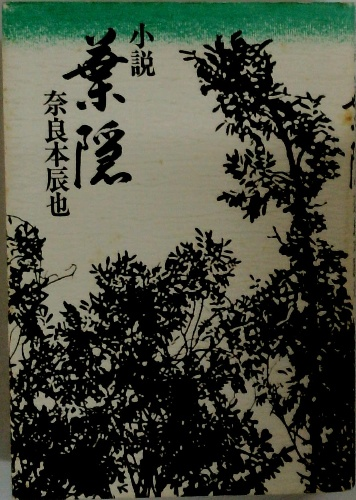 小説
葉隠
奈良本辰也